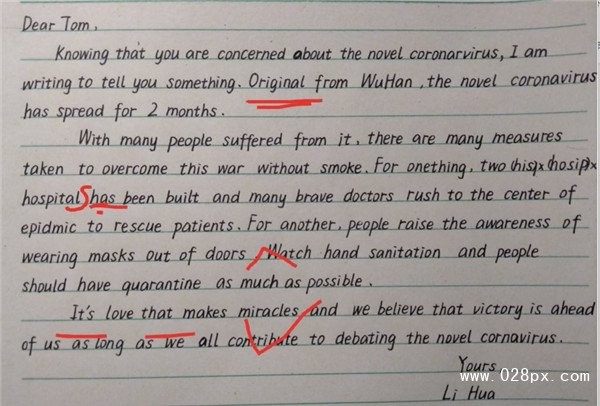 Dear Tom,
Knowing that you are concerned about the novel coronarvirus, I am
writing to tell you something. Original from WuHan, the novel coronavirus
has spread for 2 months.
With many people suffered from it, there are many measures
taken to overcome this war without smoke. For onething, two (his)x (hosip)x
hospitals has been built and many brave doctors rush to the center of
epidmic to rescue patients. For another, people raise the awareness of
wearing masks out of doors. Watch hand sanitation and people
should have quarantine as much as possible.
It's love that makes miracles and we believe that victory is ahead
of us as long as we all contribute to debating the novel cornavirus.
Yours
Li Hua
www.028px.com